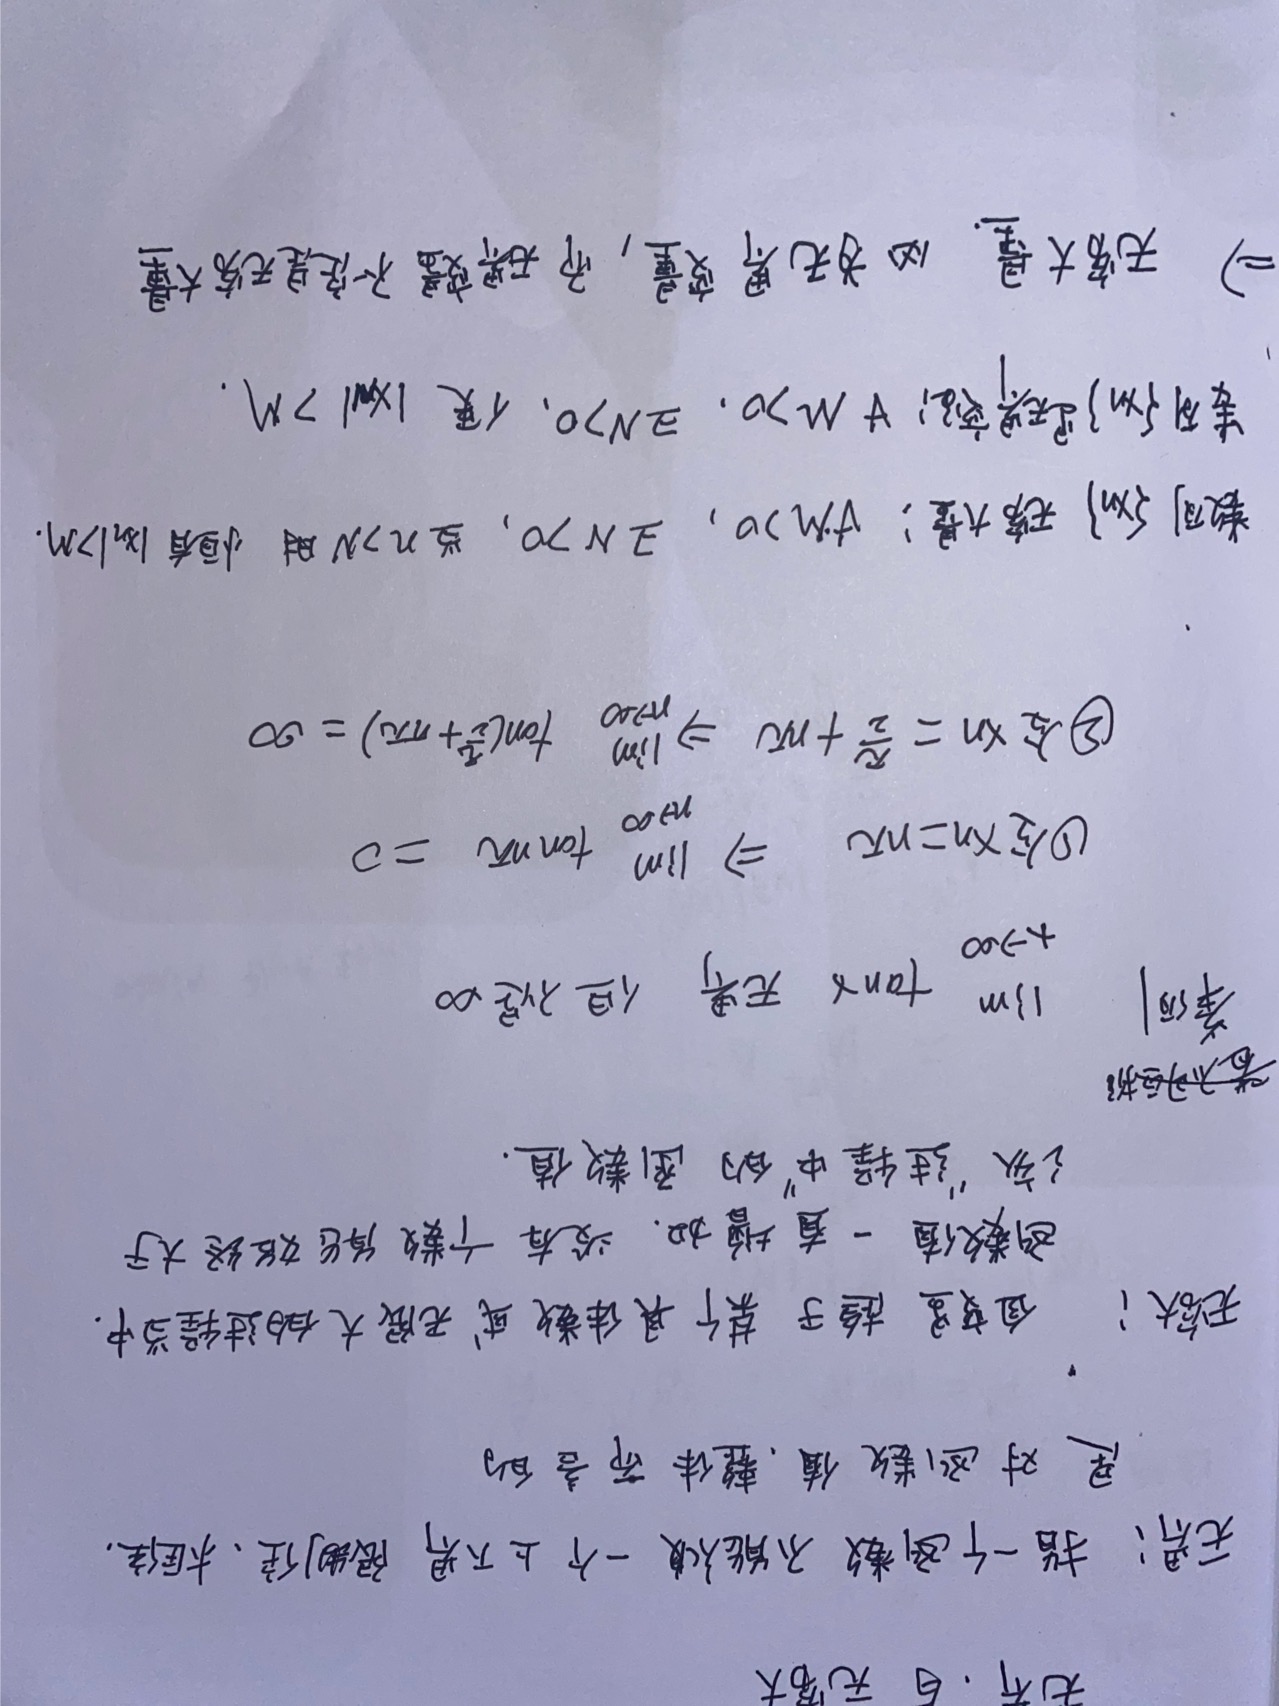 无界.与无穷大
无界: 指一个函数不能被一个上下界限制住、框住.
是对函数值.整体而言的
无穷大: 自变量趋于某个具体数或无限大的过程当中.
函数值一直增加. 没有一个数能始终大于
这次"过程中"的函数值.
举例 lim tanx 无界 但不是∞
x→∞
①令 xn=nπ ⇒ lim tan nπ = 0
n→∞
②令 xn = π/2 + nπ ⇒ lim tan(π/2+nπ) = ∞
n→∞
数列{xn} 无穷大量: ∀M>0, ∃N>0, 当n>N时 恒有|xn|>M.
数列{xn}是无界变量: ∀M>0. ∃N>0, 使 |xN|>M.
⇒ 无穷大量 必为无界变量, 而无界变量不一定是无穷大量